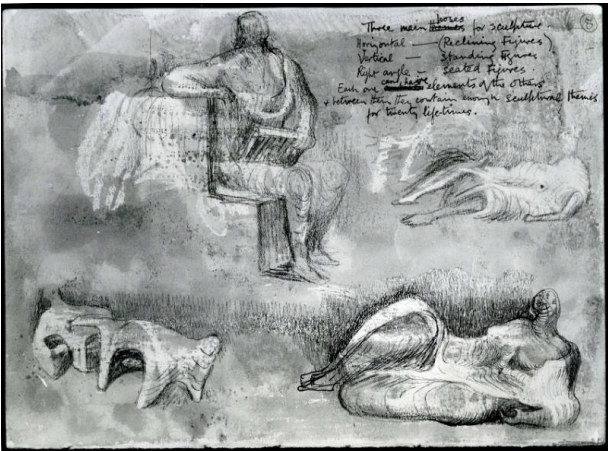 Three main poses themes for sculpture
Horizontal — (Reclining Figures)
Vertical — Standing figures
Right angle — Seated Figures.
Each one can have elements of the others
& between them they contain enough sculptural themes
for twenty lifetimes.